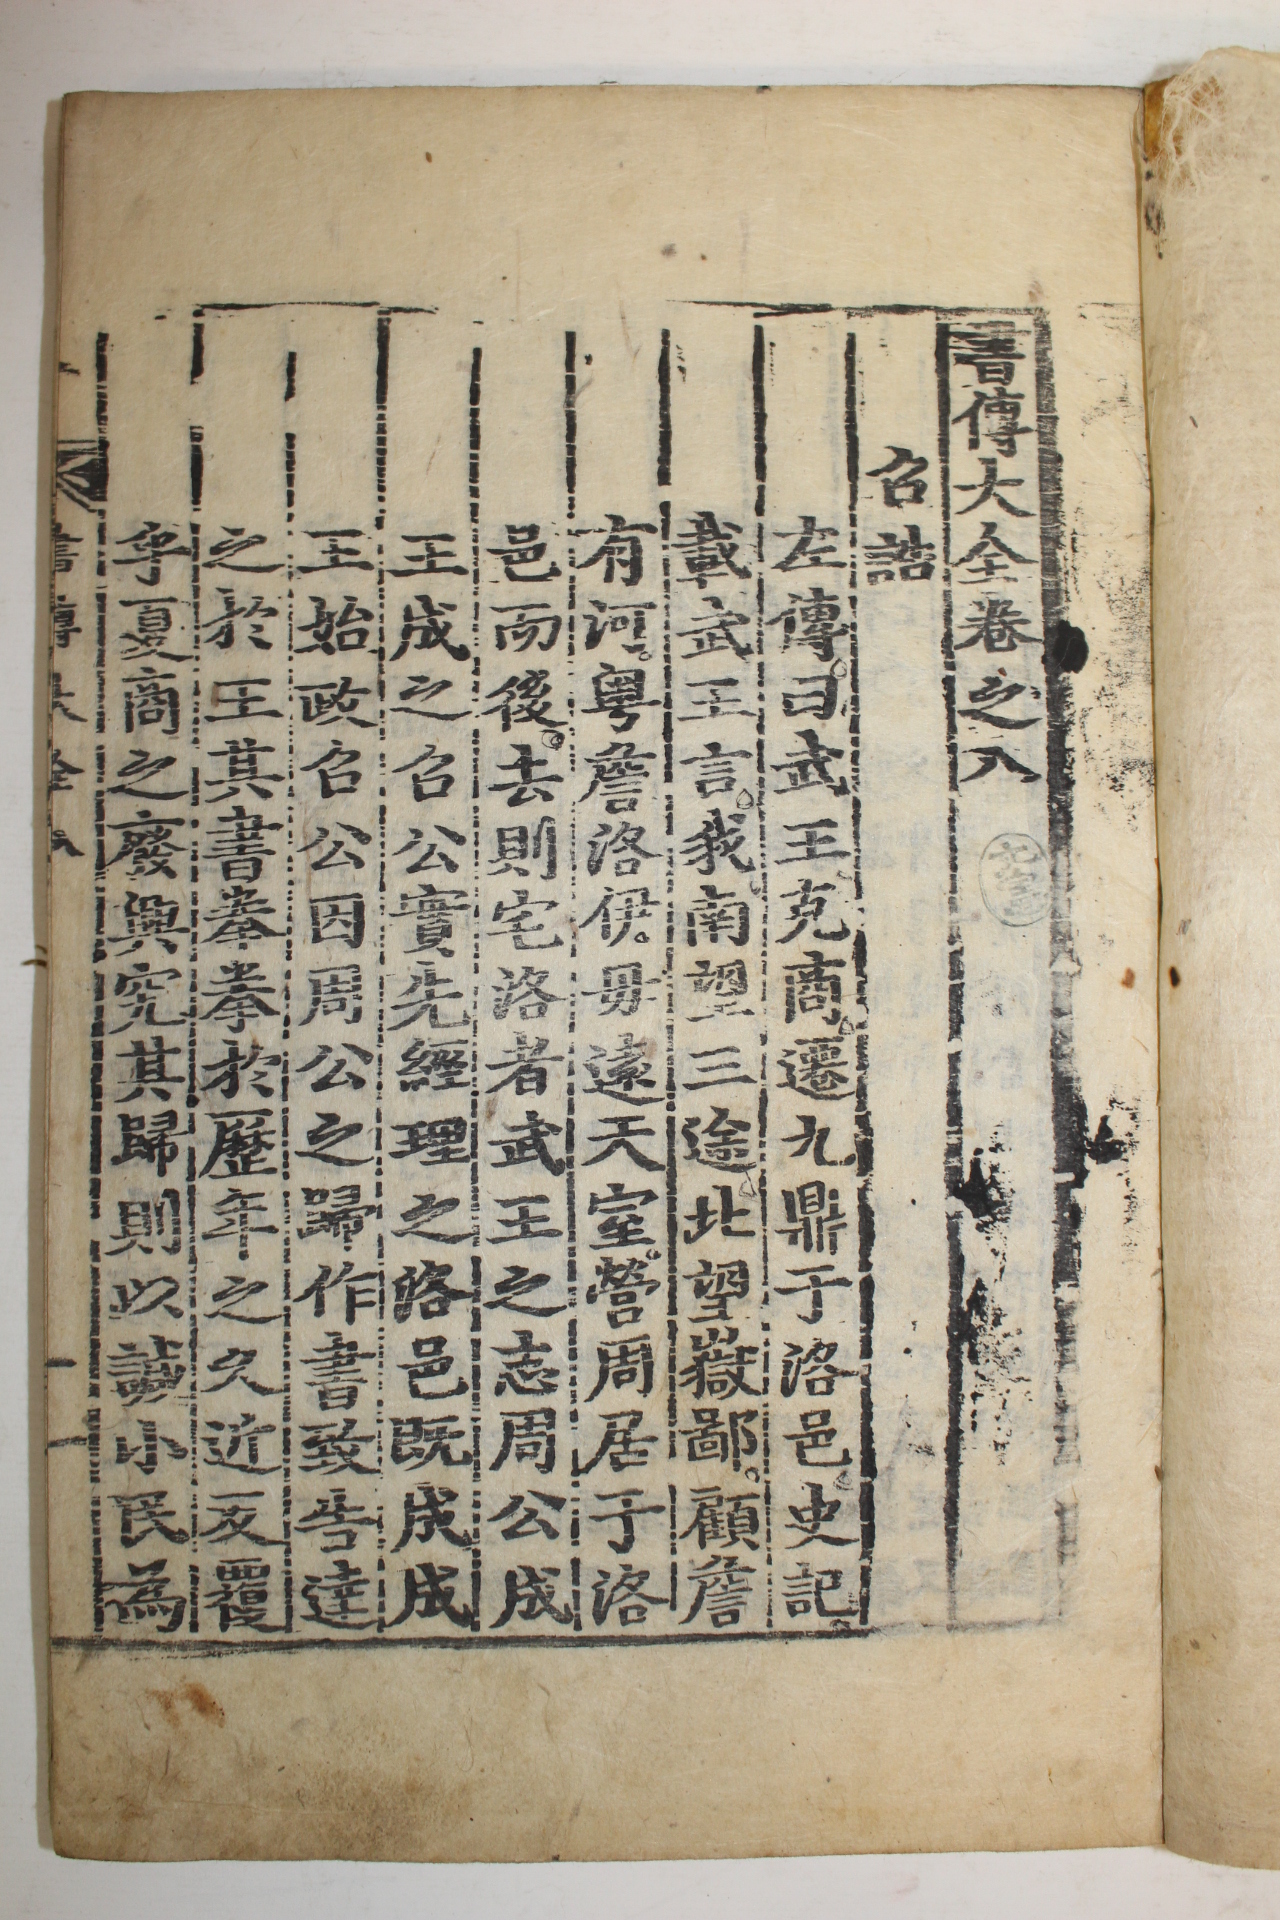 書傳大全卷之八
召誥
左傳曰武王克商遷九鼎于洛邑史記
載武王言我南望三途北望嶽鄙顧詹
有河粤詹洛伊毋遠天室營周居于洛
邑而後去則宅洛者武王之志周公成
王成之召公實先經理之洛邑既成成
王始政召公因周公之歸作書致告達
之於王其書拳拳於歷年之久近反覆
乎夏商之廢興究其歸則以諴小民爲
書傳大全八